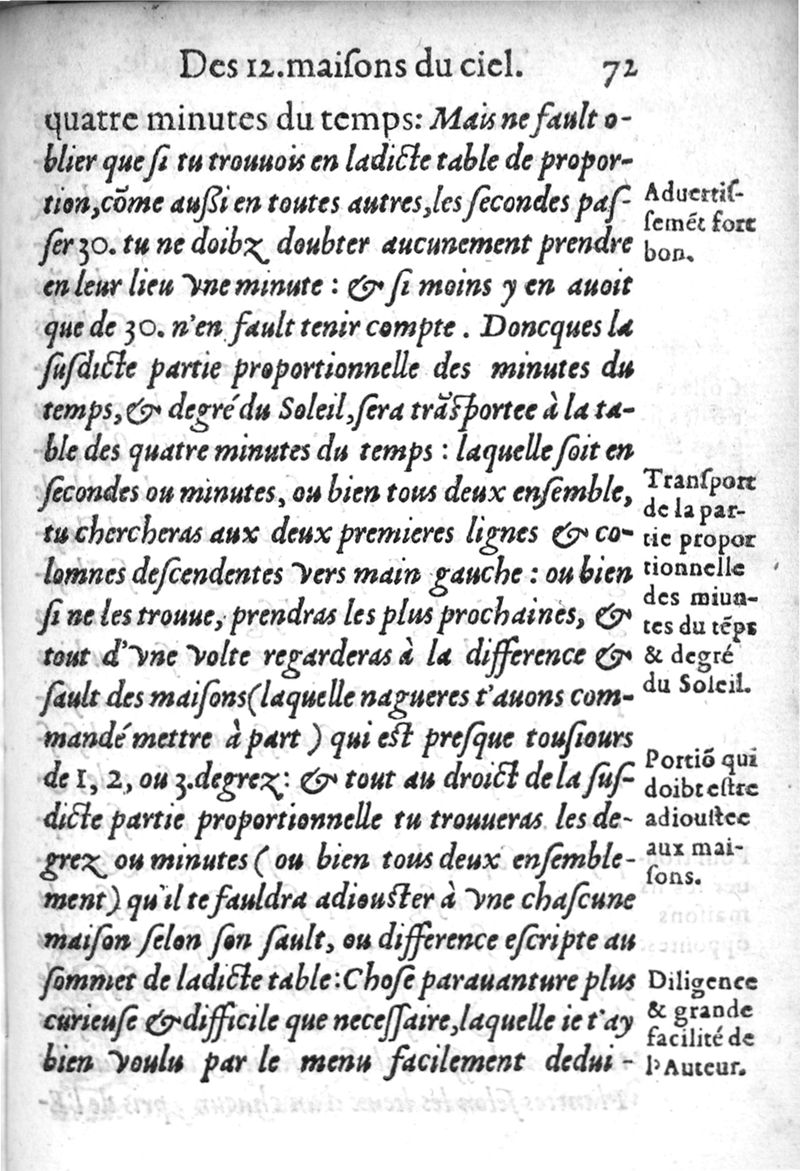 Des 12. maiſons du ciel. 72
quatre minutes du temps: Mais ne fault o-
blier que ſi tu trouuois en ladicte table de propor-
tion, cõme außi en toutes autres, les ſecondes paſ-
ſer 30. tu ne doibz doubter aucunement prendre
en leur lieu vne minute : & ſi moins y en auoit
que de 30. n'en fault tenir compte . Doncques la
ſuſdicte partie proportionnelle des minutes du
temps, & degré du Soleil, ſera trãſportee à la ta-
ble des quatre minutes du temps : laquelle ſoit en
ſecondes ou minutes, ou bien tous deux enſemble,
tu chercheras aux deux premieres lignes & co-
lomnes deſcendentes vers main gauche : ou bien
ſi ne les trouue, prendras les plus prochaines, &
tout d'vne volte regarderas à la difference &
ſault des maiſons (laquelle nagueres t'auons com-
mandé mettre à part ) qui eſt preſque touſiours
de 1, 2, ou 3. degrez : & tout au droict de la ſuſ-
dicte partie proportionnelle tu trouueras les de-
grez ou minutes ( ou bien tous deux enſemble-
ment ) qu'il te fauldra adiouſter à vne chaſcune
maiſon ſelon ſon ſault, ou difference eſcripte au
ſommet de ladicte table : Choſe parauanture plus
curieuſe & difficile que neceſſaire, laquelle ie t'ay
bien voulu par le menu facilement dedui-
Aduertiſ-
ſemét fort
bon.
Tranſport
de la par-
tie propor
tionnelle
des miuu-
tes du tẽps
& degré
du Soleil.
Portiõ qui
doibt eſtre
adiouſtee
aux mai-
ſons.
Diligence
& grande
facilité de
l'Auteur.